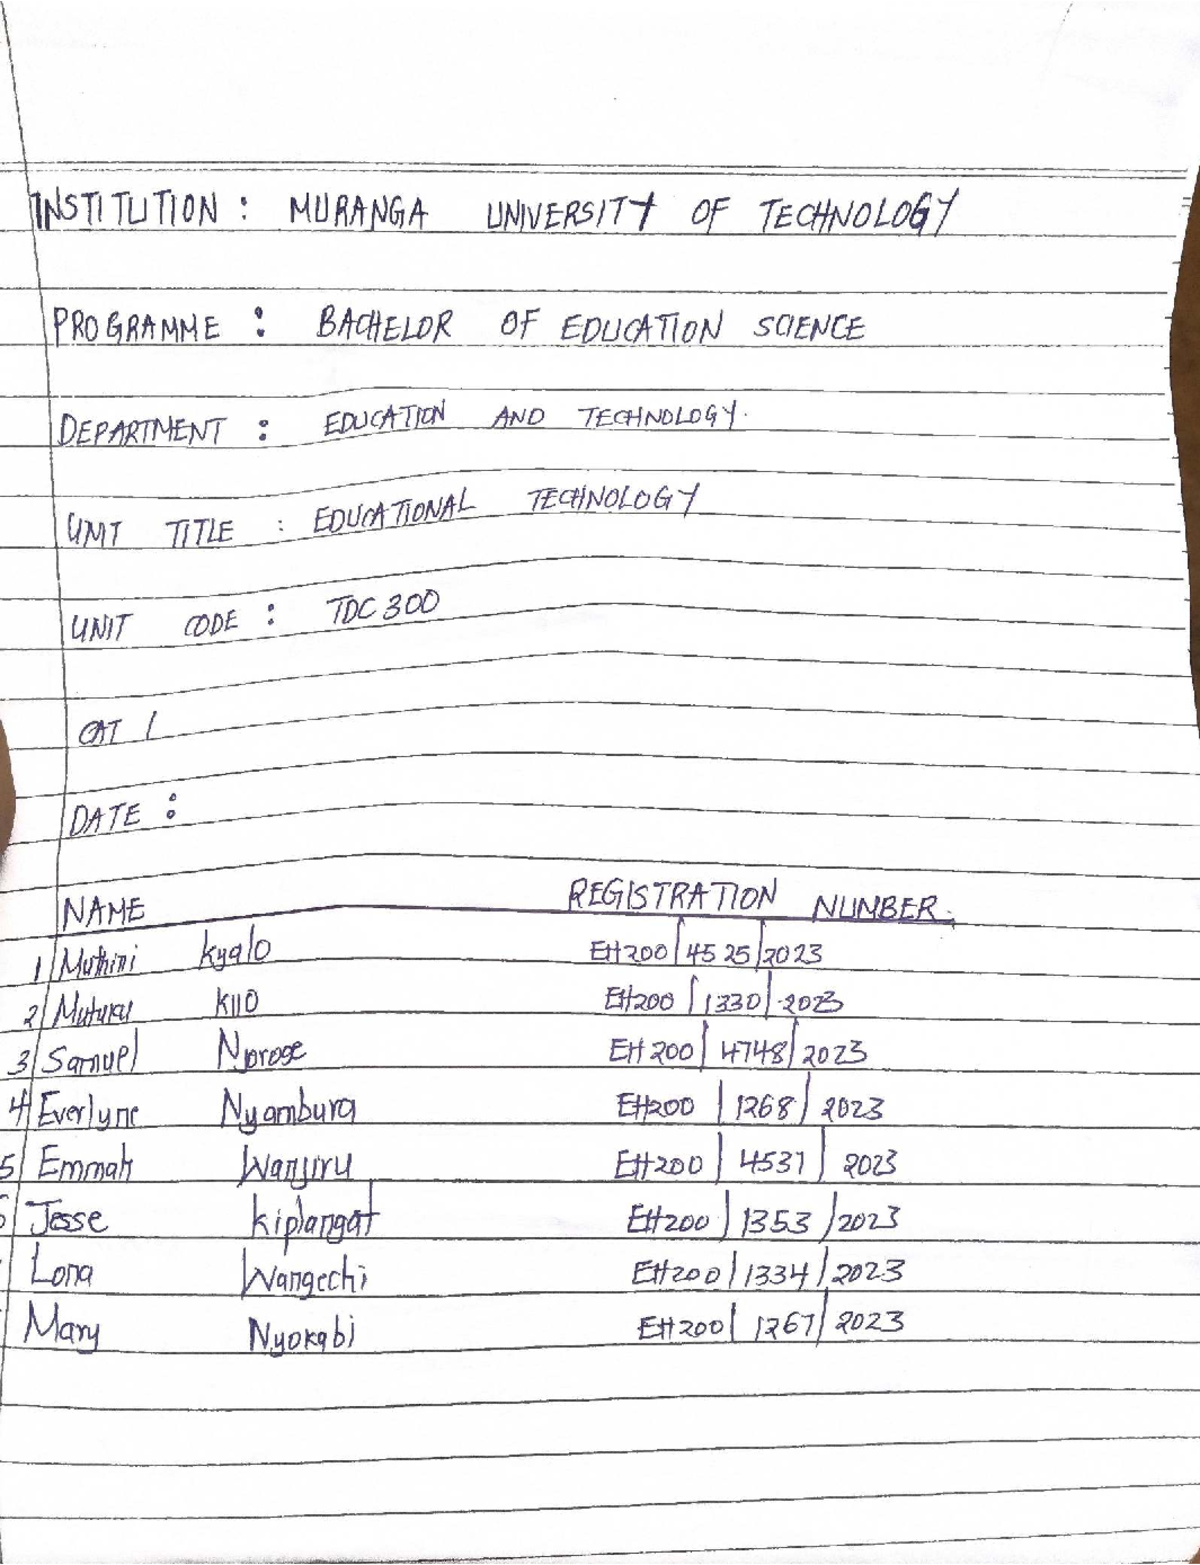 INSTITUTION : MURANGA UNIVERSITY OF TECHNOLOGY
PROGRAMME : BACHELOR OF EDUCATION SCIENCE
DEPARTMENT : EDUCATION AND TECHNOLOGY.
UNIT TITLE : EDUCATIONAL TECHNOLOGY
UNIT CODE : TDC 300
CAT 1
DATE :
NAME REGISTRATION NUMBER.
1 Muthini Kyalo EH200/4525/2023
2 Mutuku Kilo EH200/1330/2023
3 Samuel Njoroge EH200/4748/2023
4 Everlyne Nyambura EH200/1268/2023
5 Emmah Wanjiru EH200/4537/2023
Jesse Kiplangat EH200/1353/2023
Lona Wangechi EH200/1334/2023
Mary Nyokabi EH200/1267/2023